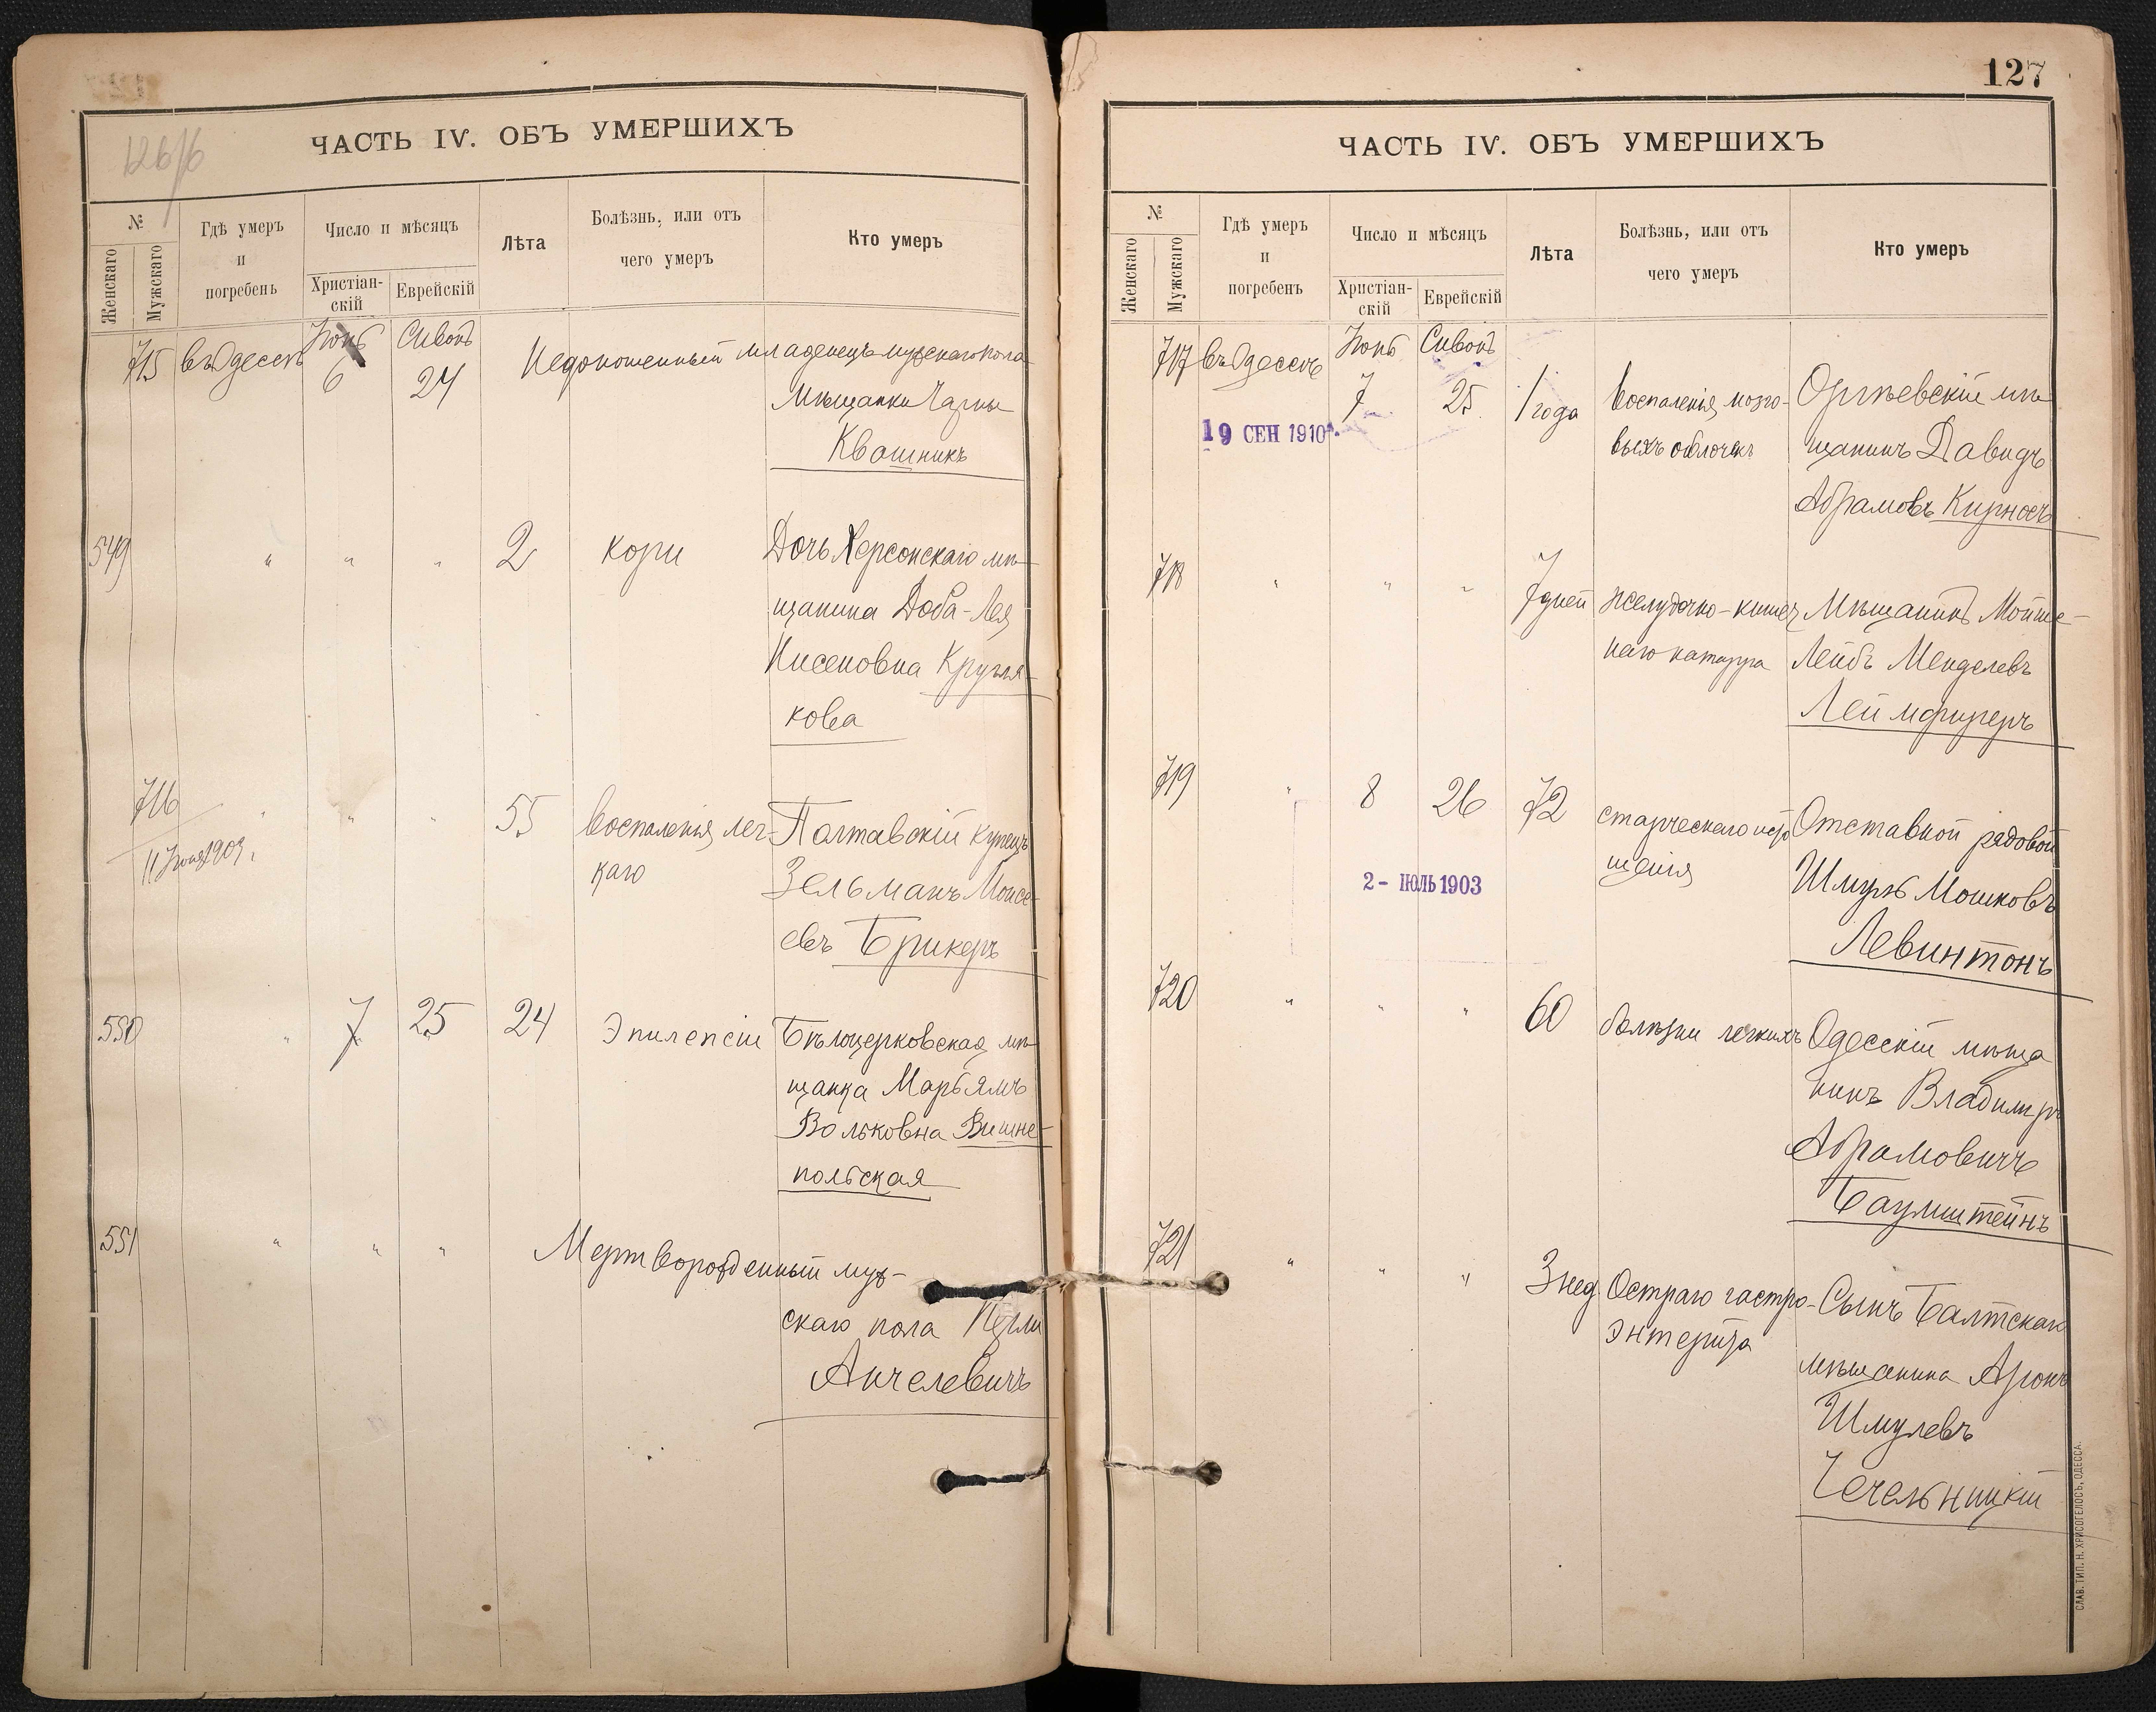 126/б
ЧАСТЬ IV. ОБЪ УМЕРШИХЪ
№
Женскаго
Мужскаго
Гдѣ умеръ
и
погребенъ
Число и мѣсяцъ
Христіан-
скій
Еврейскій
Лѣта
Болѣзнь, или отъ
чего умеръ
Кто умеръ
715 въ Одессѣ Іюнь 6 Сивонъ 24 Недоношенный младенецъ мужскаго пола
Мѣщанки Чарны
Квашникъ
549 " " " 2 кори Дочь Херсонскаго мѣ-
щанина Доба-Лея
Нисеновна Кругля-
кова
716 " " " 55 воспаленія лег- Полтавскій купецъ
11 Іюня 1903 г.
каго Зельманъ Моисе-
евъ Брикеръ
550 " 7 25 24 Эпилепсіи Бѣлоцерковская мѣ-
щанка Марьямъ
Вольковна Вишне-
польская
551 " " " Мертворожденный муж-
скаго пола Перли
Анчелевичъ
127
ЧАСТЬ IV. ОБЪ УМЕРШИХЪ
№
Женскаго
Мужскаго
Гдѣ умеръ
и
погребенъ
Число и мѣсяцъ
Христіан-
скій
Еврейскій
Лѣта
Болѣзнь, или отъ
чего умеръ
Кто умеръ
717 въ Одессѣ Іюнь 7 Сивонъ 25 1 года воспаленія мозго- Оргѣевскій мѣ-
19 СЕН 1910
выхъ оболочекъ щанинъ Давидъ
Абрамовъ Кирносъ
718 " " " 7 дней желудочно-кишеч Мѣщанинъ Мойше-
наго катарра Лейбъ Менделевъ
719 " 8 26 72 старческаго исто Отставной рядовой
2 - ІЮЛЬ 1903
щенія Шмуль Мошковъ
Левинтонъ
720 " " " 60 болѣзни легкихъ Одесскій мѣща
нинъ Владимиръ
Абрамовичъ
Баумштейнъ
721 " " " 3 нед. Остраго гастро- Сынъ Балтскаго
энтерита
мѣщанина Аронъ
Шмулевъ
Чечельницкій
СЛАВ. ТИП. Н. ХРИСОГЕЛОСЪ, ОДЕССА.